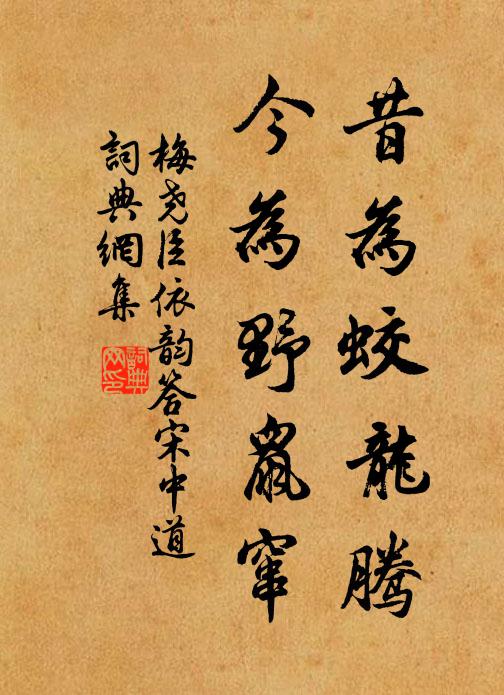 昔為蛟龍騰
今為野鼠竄
梅尧臣依韵答宋中道
詞典網集
詞典网印